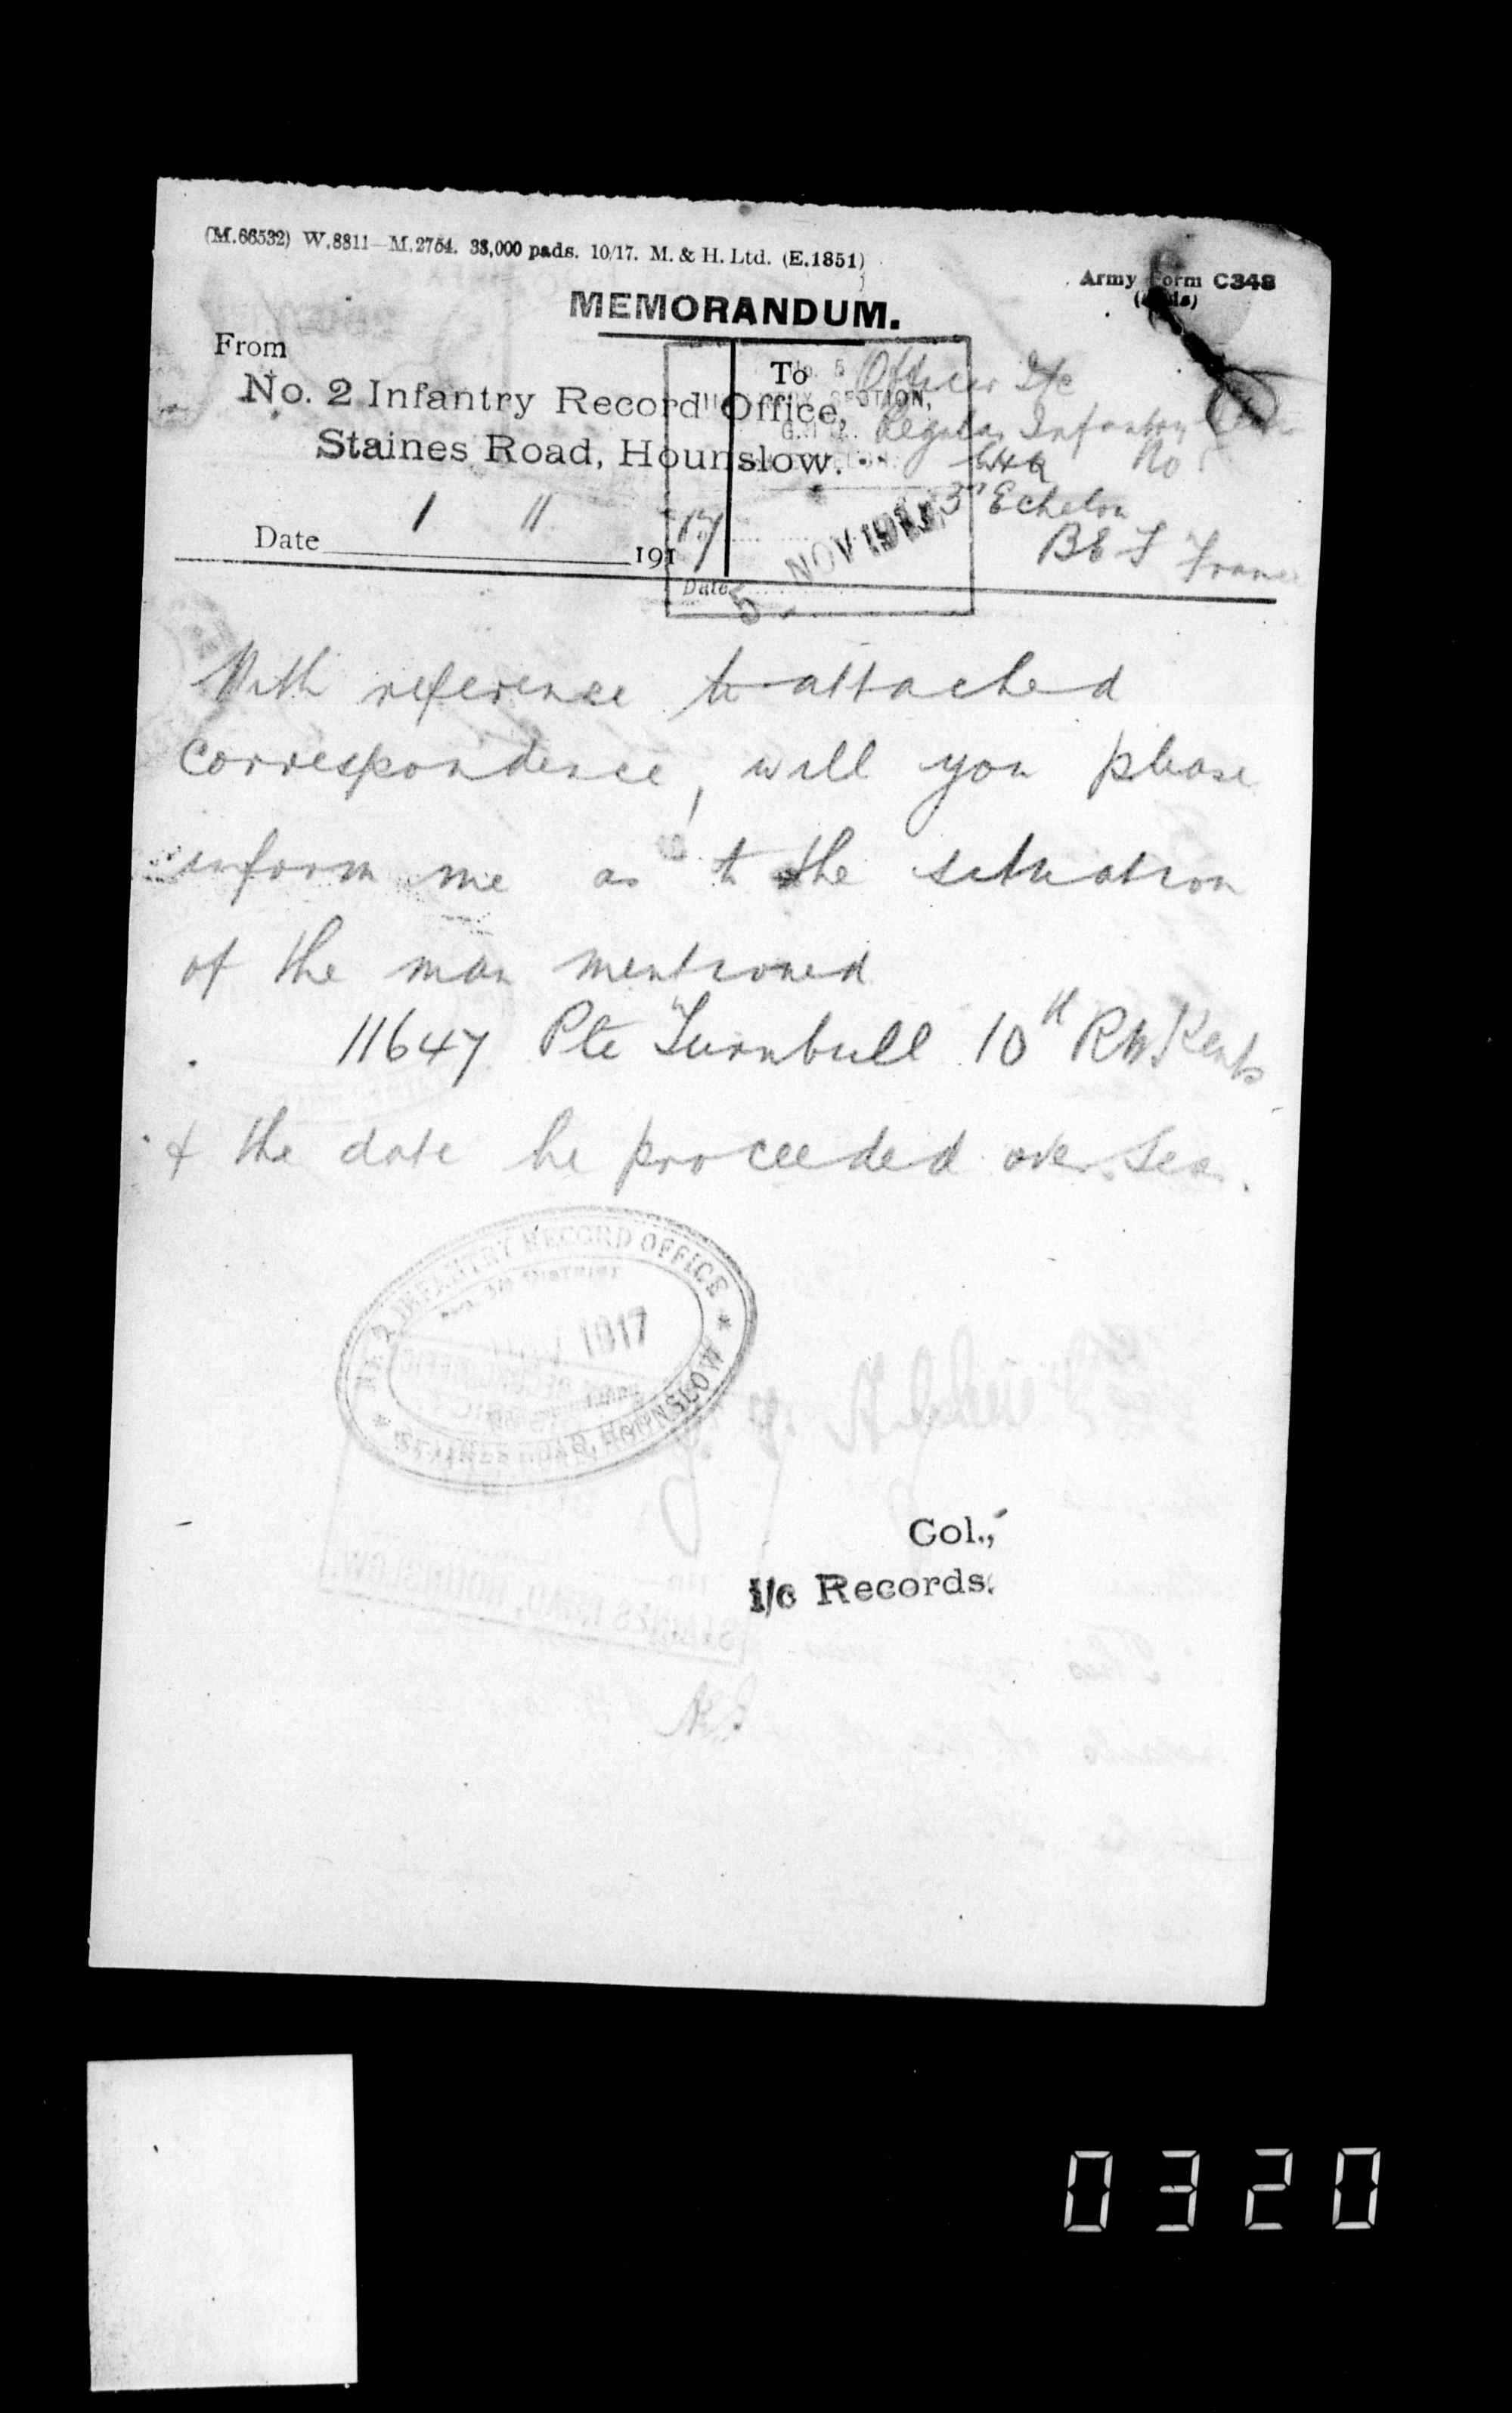 (M.66532) W.8811—M.2754. 38,000 pads. 10/17. M. & H. Ltd. (E.1851)
Army Form C348
MEMORANDUM.
From
No. 2 Infantry Record Office,
Staines Road, Hounslow.
Date 1 11 1917
To Officer I/c
SECTION,
Regular Infantry
GHQ No
3rd Echelon
BEF France
Date 5 NOV 191
With reference to attached
correspondence, will you please
inform me as to the situation
of the man mentioned
11647 Pte Turnbull 10th RW Kents
& the date he proceeded over Sea.
No. 2 INFANTRY RECORD OFFICE
DISTRICT
1917
* STAINES ROAD, HOUNSLOW *
Col.,
i/c Records.
STAINES ROAD, HOUNSLOW.
0320